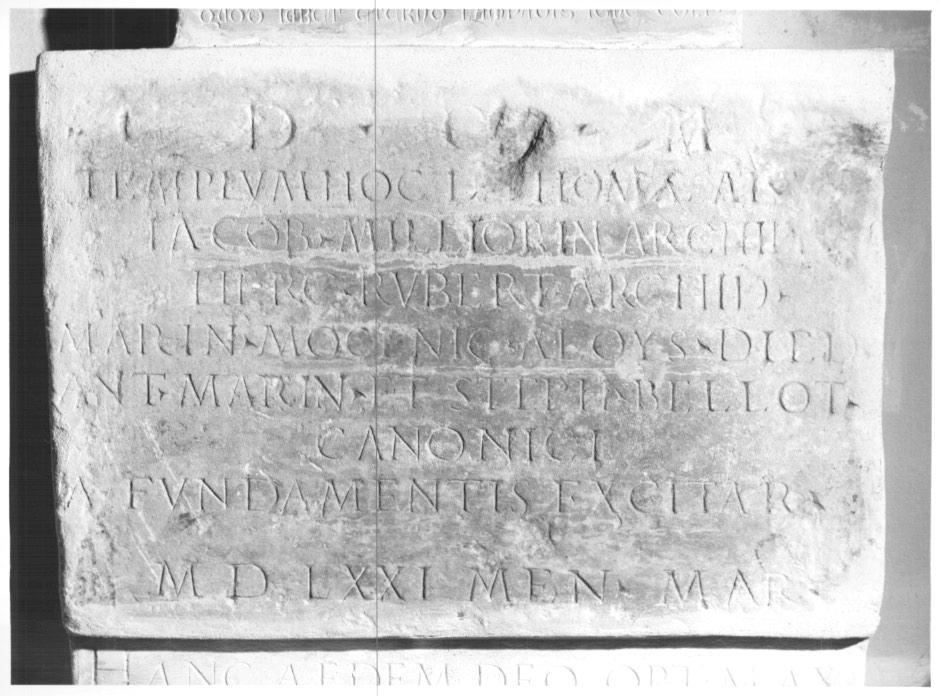 QUOD IUGET
D · O · M
TEMPLVM HOC D THOMÆ
IACOB · MILLIORIN ARCHID
HERC · RVBERT ARCHID
MARIN · MOCENIC · ALOYS · DIED
ANT · MARIN · ET STEPH · BELLOT ·
CANONICI
A FVNDAMENTIS EXCITAR ·
M D LXXI MEN · MAR
HANC AEDEM DEO OPT MAX